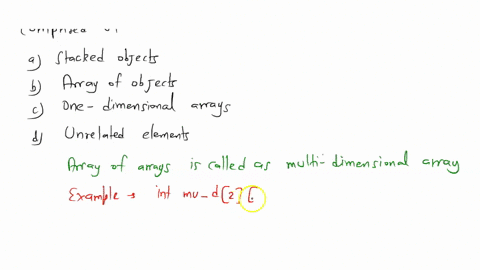 comprised of
a) Stacked objects
b) Array of objects
c) One-dimensional arrays
d) Unrelated elements
Array of arrays is called as multi-dimensional array
Example → int mu_d[2][